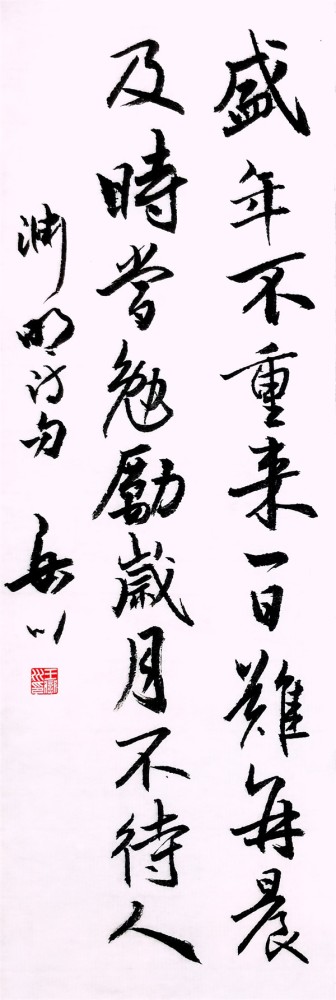 盛年不重来一日難再晨
及時當勉勵歲月不待人
渊明诗句